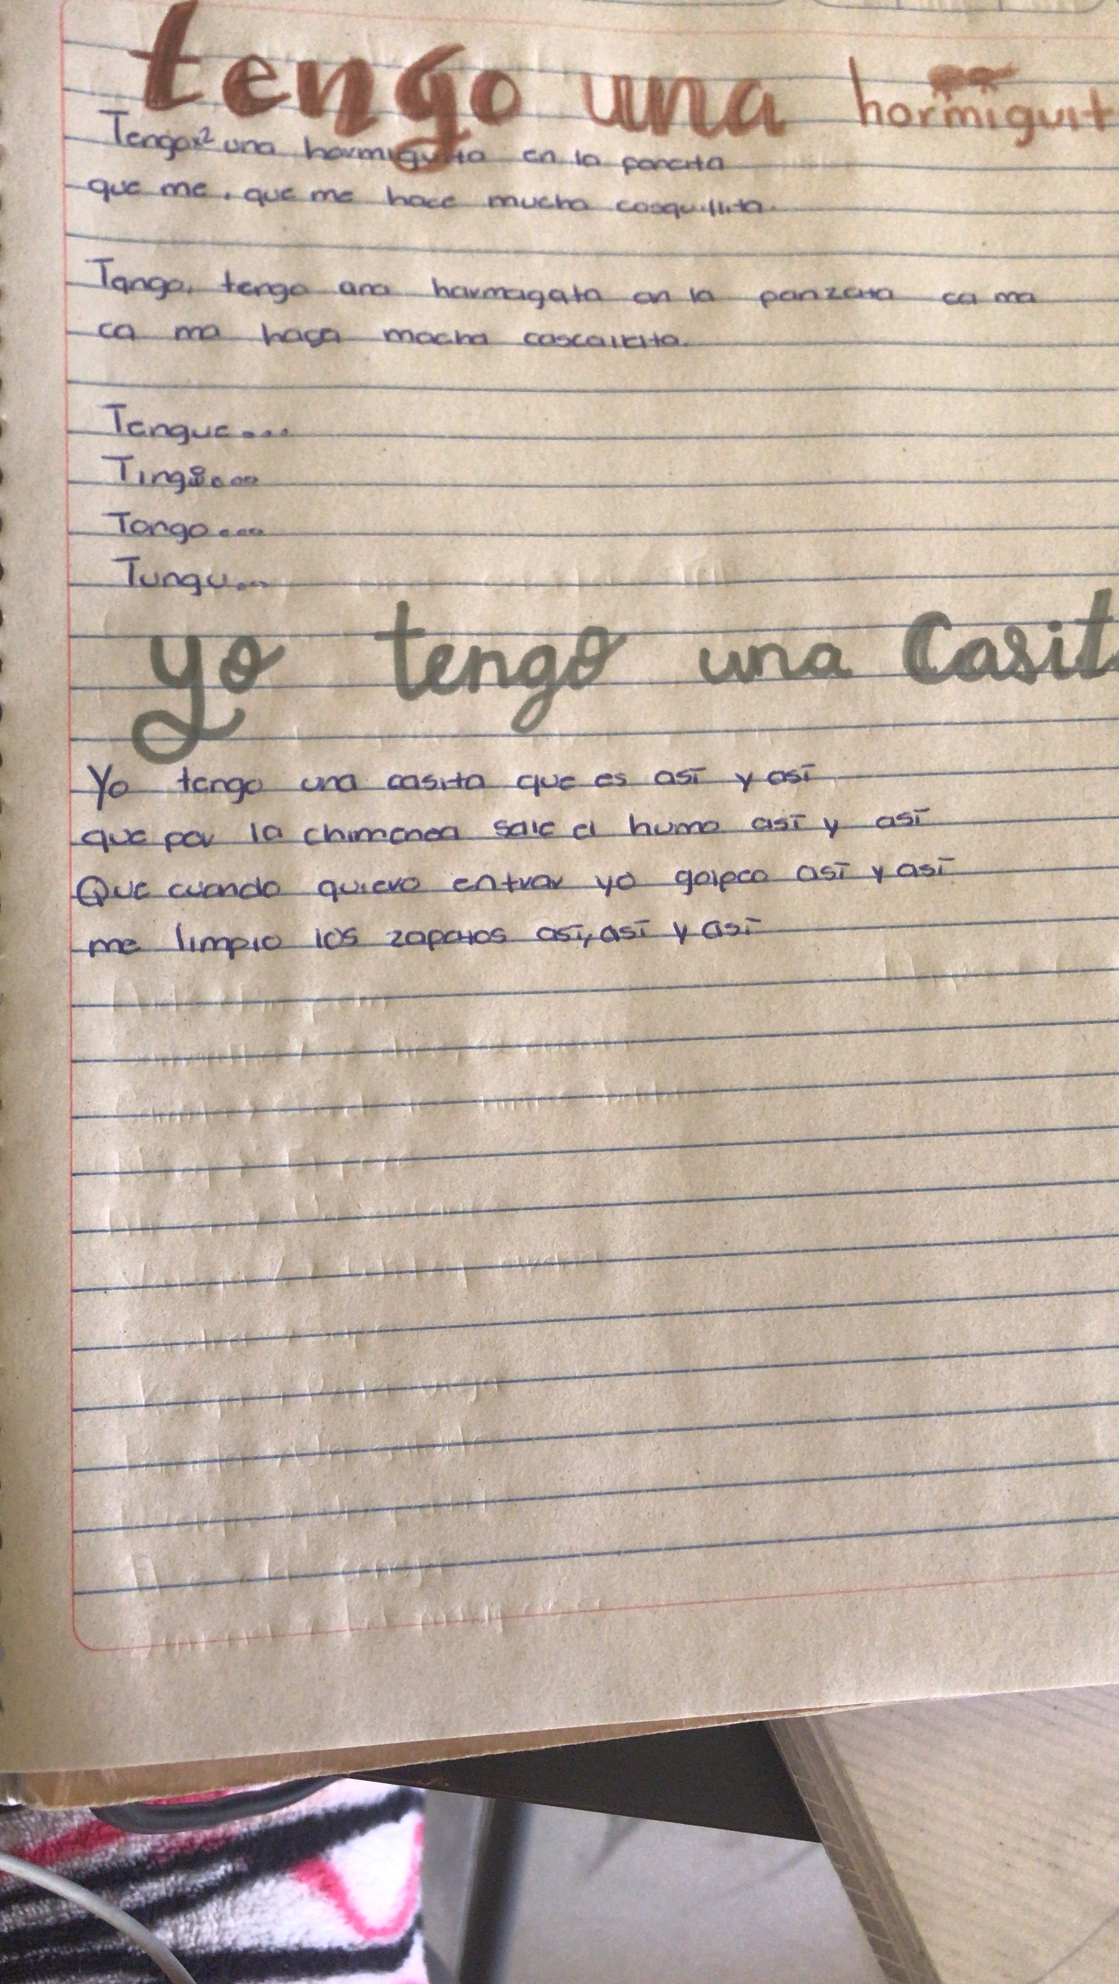 tengo una hormiguit
Tengo x2 una hormiguita en la pancita
que me, que me hace mucha cosquillita.
Tango, tango ana harmagata an la panzata ca ma
ca ma haga macha cascalata.
Tengue...
Tingi...
Tongo...
Tungu...
yo tengo una Casit
Yo tengo una casita que es así y así
que por la chimenea sale el humo así y así
Que cuando quiero entrar yo golpeo así y así
me limpio los zapatos así, así y así